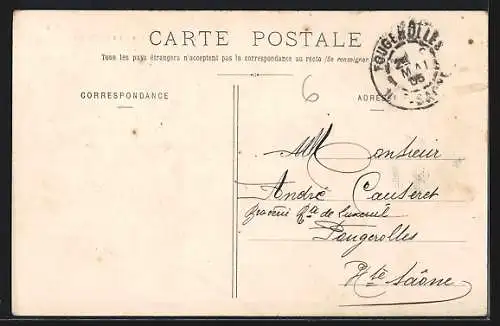 CARTE POSTALE
Tous les pays étrangers n'acceptent pas la correspondance au recto (Se renseigner
CORRESPONDANCE
ADRESSE
FOUGEROLLES
MAI
05
SAONE
6
Monsieur
André Cauteret
de Luxeuil
Fougerolles
Hte Saône